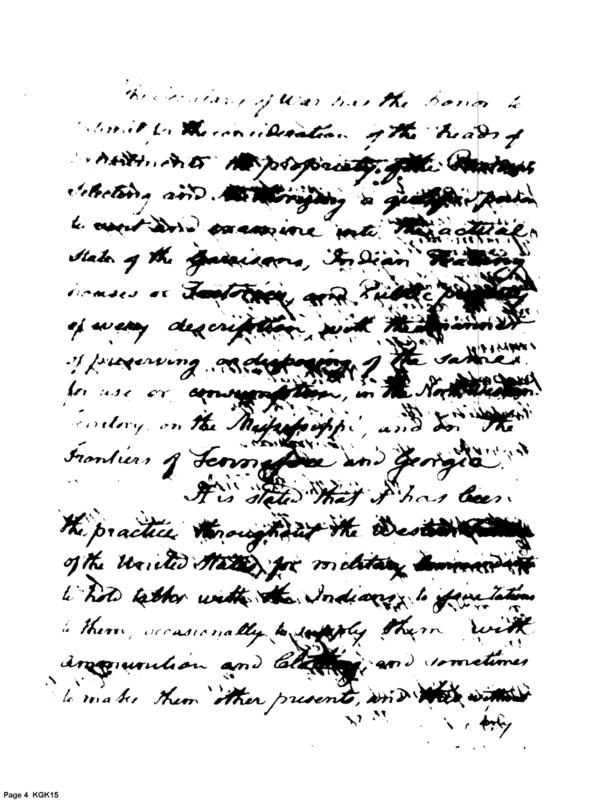 The Secretary of War has the honor to
submit for the consideration of the heads of
Departments the propriety of the
selecting and authorizing a qualified person
to visit and examine into the actual
state of the Garrisons, Indian Trading
houses or Factories, and Public property
of every description, with the manner
of preserving or disposing of the same
for use or consumption, in the North Western
Territory, on the Mississippi, and on the
Frontiers of Tennessee and Georgia
It is stated that it has been
the practice throughout the Western
of the United States, for military Commandants
to hold talks with the Indians, to issue rations
to them, occasionally to supply them with
ammunition and Clothing, and sometimes
to make them other presents, and this without
any
Page 4 KGK15